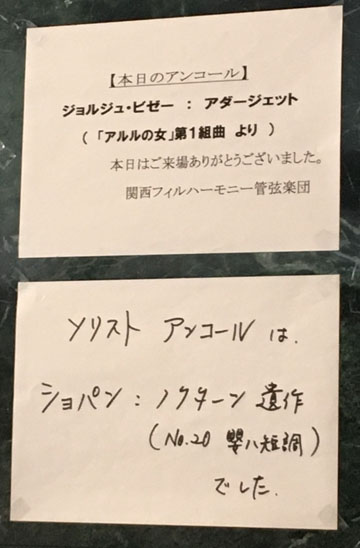 【本日のアンコール】
ジョルジュ・ビゼー ： アダージェット
（ 「アルルの女」第1組曲 より ）
本日はご来場ありがとうございました。
関西フィルハーモニー管弦楽団
ソリスト アンコールは、
ショパン：ノクターン 遺作
（No.20 嬰ハ短調）
でした.